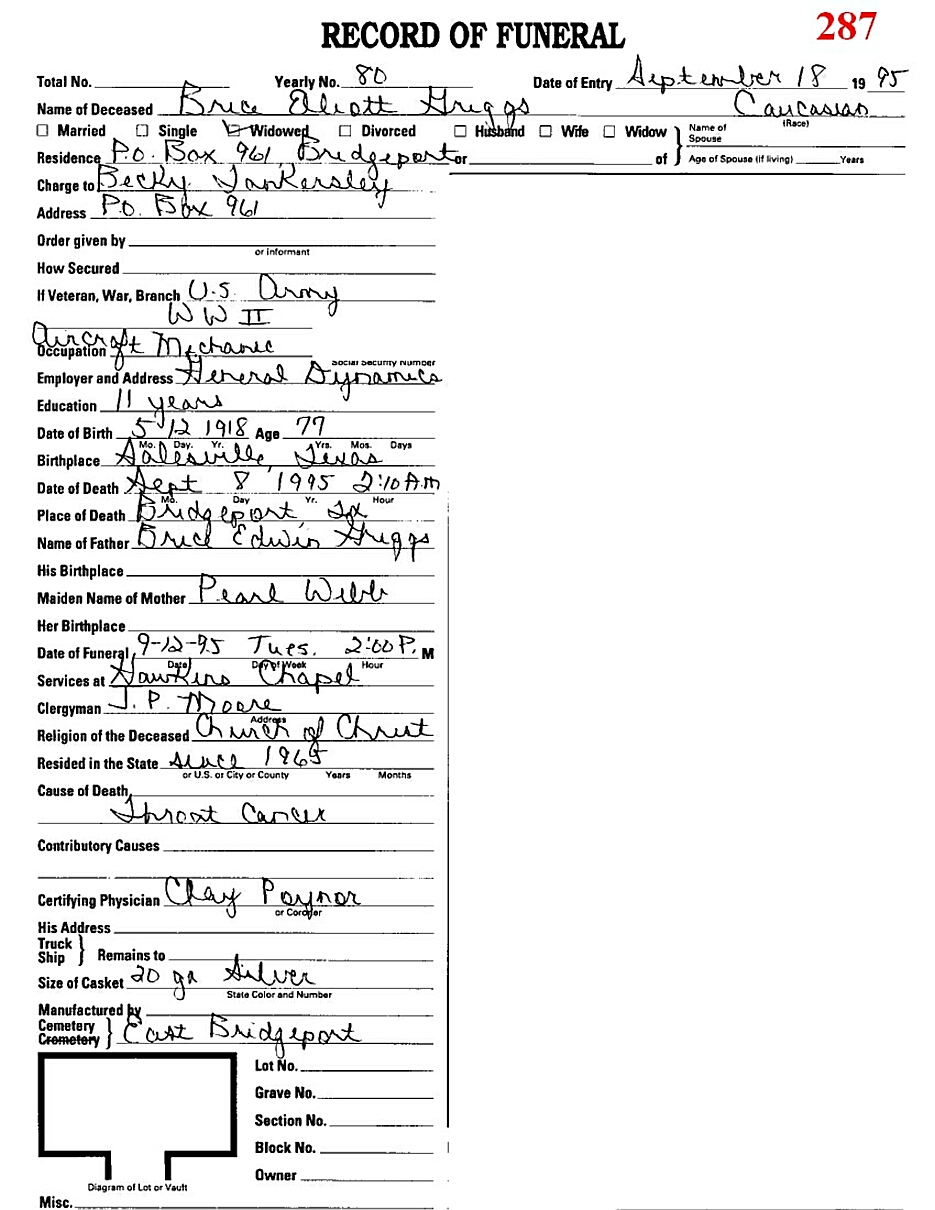 287
RECORD OF FUNERAL
Total No. Yearly No. 80 Date of Entry September 18 19 95
Name of Deceased Brice Eliott Griggs Caucasian
(Race)
Married Single Widowed Divorced Husband Wife Widow Name of Spouse
Residence P.O. Box 961, Bridgeport or of Age of Spouse (if living) Years
Charge to Becky Tankersley
Address P.O. Box 961
Order given by
or informant
How Secured
If Veteran, War, Branch U.S. Army
WW II
Occupation Aircraft Mechanic
Social Security Number
Employer and Address General Dynamics
Education 11 years
Date of Birth 5 12 1918 Age 77
Mo. Day. Yr. Yrs. Mos. Days
Birthplace Salesville, Texas
Date of Death Sept 8 1995 2:10 A.M
Mo. Day Yr. Hour
Place of Death Bridgeport, Tx
Name of Father Brice Edwin Griggs
His Birthplace
Maiden Name of Mother Pearl Webb
Her Birthplace
Date of Funeral 9-12-95 Tues. 2:00 P. M
Date Day of Week Hour
Services at Hawkins Chapel
Clergyman J. P. Moore
Address
Religion of the Deceased Church of Christ
Resided in the State since 1965
or U.S. or City or County Years Months
Cause of Death
Throat Cancer
Contributory Causes
Certifying Physician Clay Poynor
or Coroner
His Address
Truck
Ship Remains to
Size of Casket 20 ga Silver
State Color and Number
Manufactured by
Cemetery
Crometory East Bridgeport
Lot No.
Grave No.
Section No.
Block No.
Owner
Diagram of Lot or Vault
Misc.